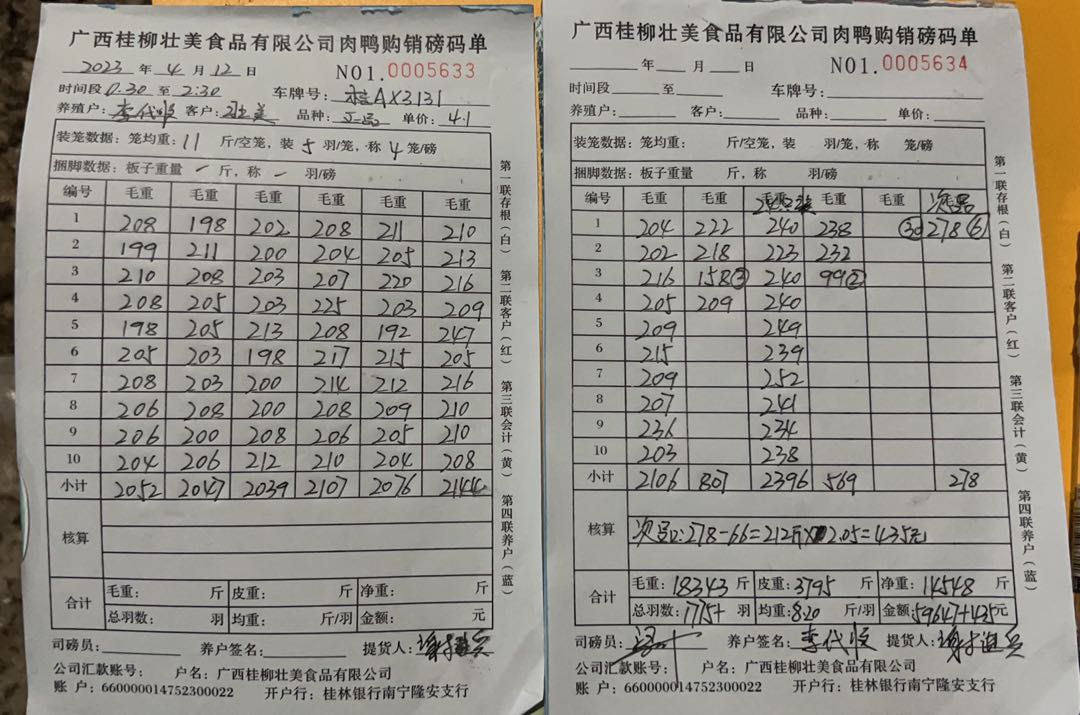 广西桂柳壮美食品有限公司肉鸭购销磅码单
2023 年 4 月 12 日 NO1.0005633
时间段 0.30 至 2:30 车牌号: 桂AX3131
养殖户: 李代收 客户: 壮美 品种: 正品 单价: 4.1
装笼数据: 笼均重: 11 斤/空笼, 装 5 羽/笼, 称 4 笼/磅
捆脚数据: 板子重量 — 斤, 称 — 羽/磅
编号 毛重 毛重 毛重 毛重 毛重 毛重
1 208 198 202 208 211 210
2 199 211 200 204 205 213
3 210 208 203 207 220 216
4 208 205 203 225 203 209
5 198 205 213 208 192 247
6 205 203 198 217 215 205
7 208 203 200 214 212 216
8 206 208 200 208 209 210
9 206 200 208 206 205 210
10 204 206 212 210 204 208
小计 2052 2047 2039 2107 2076 2144
核算
合计 毛重: 斤 皮重: 斤 净重: 斤
总羽数: 羽 均重: 斤/羽 金额: 元
司磅员: 养户签名: 提货人:
公司汇款账号: 户名: 广西桂柳壮美食品有限公司
账 户: 660000014752300022 开户行: 桂林银行南宁隆安支行
第一联存根(白) 第二联客户(红) 第三联会计(黄) 第四联养户(蓝)
广西桂柳壮美食品有限公司肉鸭购销磅码单
年 月 日 NO1.0005634
时间段 至 车牌号:
养殖户: 客户: 品种: 单价:
装笼数据: 笼均重: 斤/空笼, 装 羽/笼, 称 笼/磅
捆脚数据: 板子重量 斤, 称 羽/磅
编号 毛重 毛重 毛重 毛重 毛重 次品
1 204 222 240 238 30 278 6
2 202 218 223 232
3 216 158 3 240 99 2
4 205 209 240
5 209 249
6 215 239
7 209 252
8 207 241
9 236 234
10 203 238
小计 2106 807 2396 569 278
核算 次品:278-66=212斤×2.05=435元
合计 毛重: 18343 斤 皮重: 3795 斤 净重: 14548 斤
总羽数: 1775+ 羽 均重: 8.20 斤/羽 金额: 59647+435元
司磅员: 养户签名: 李代收 提货人:
公司汇款账号: 户名: 广西桂柳壮美食品有限公司
账 户: 660000014752300022 开户行: 桂林银行南宁隆安支行
第一联存根(白) 第二联客户(红) 第三联会计(黄) 第四联养户(蓝)